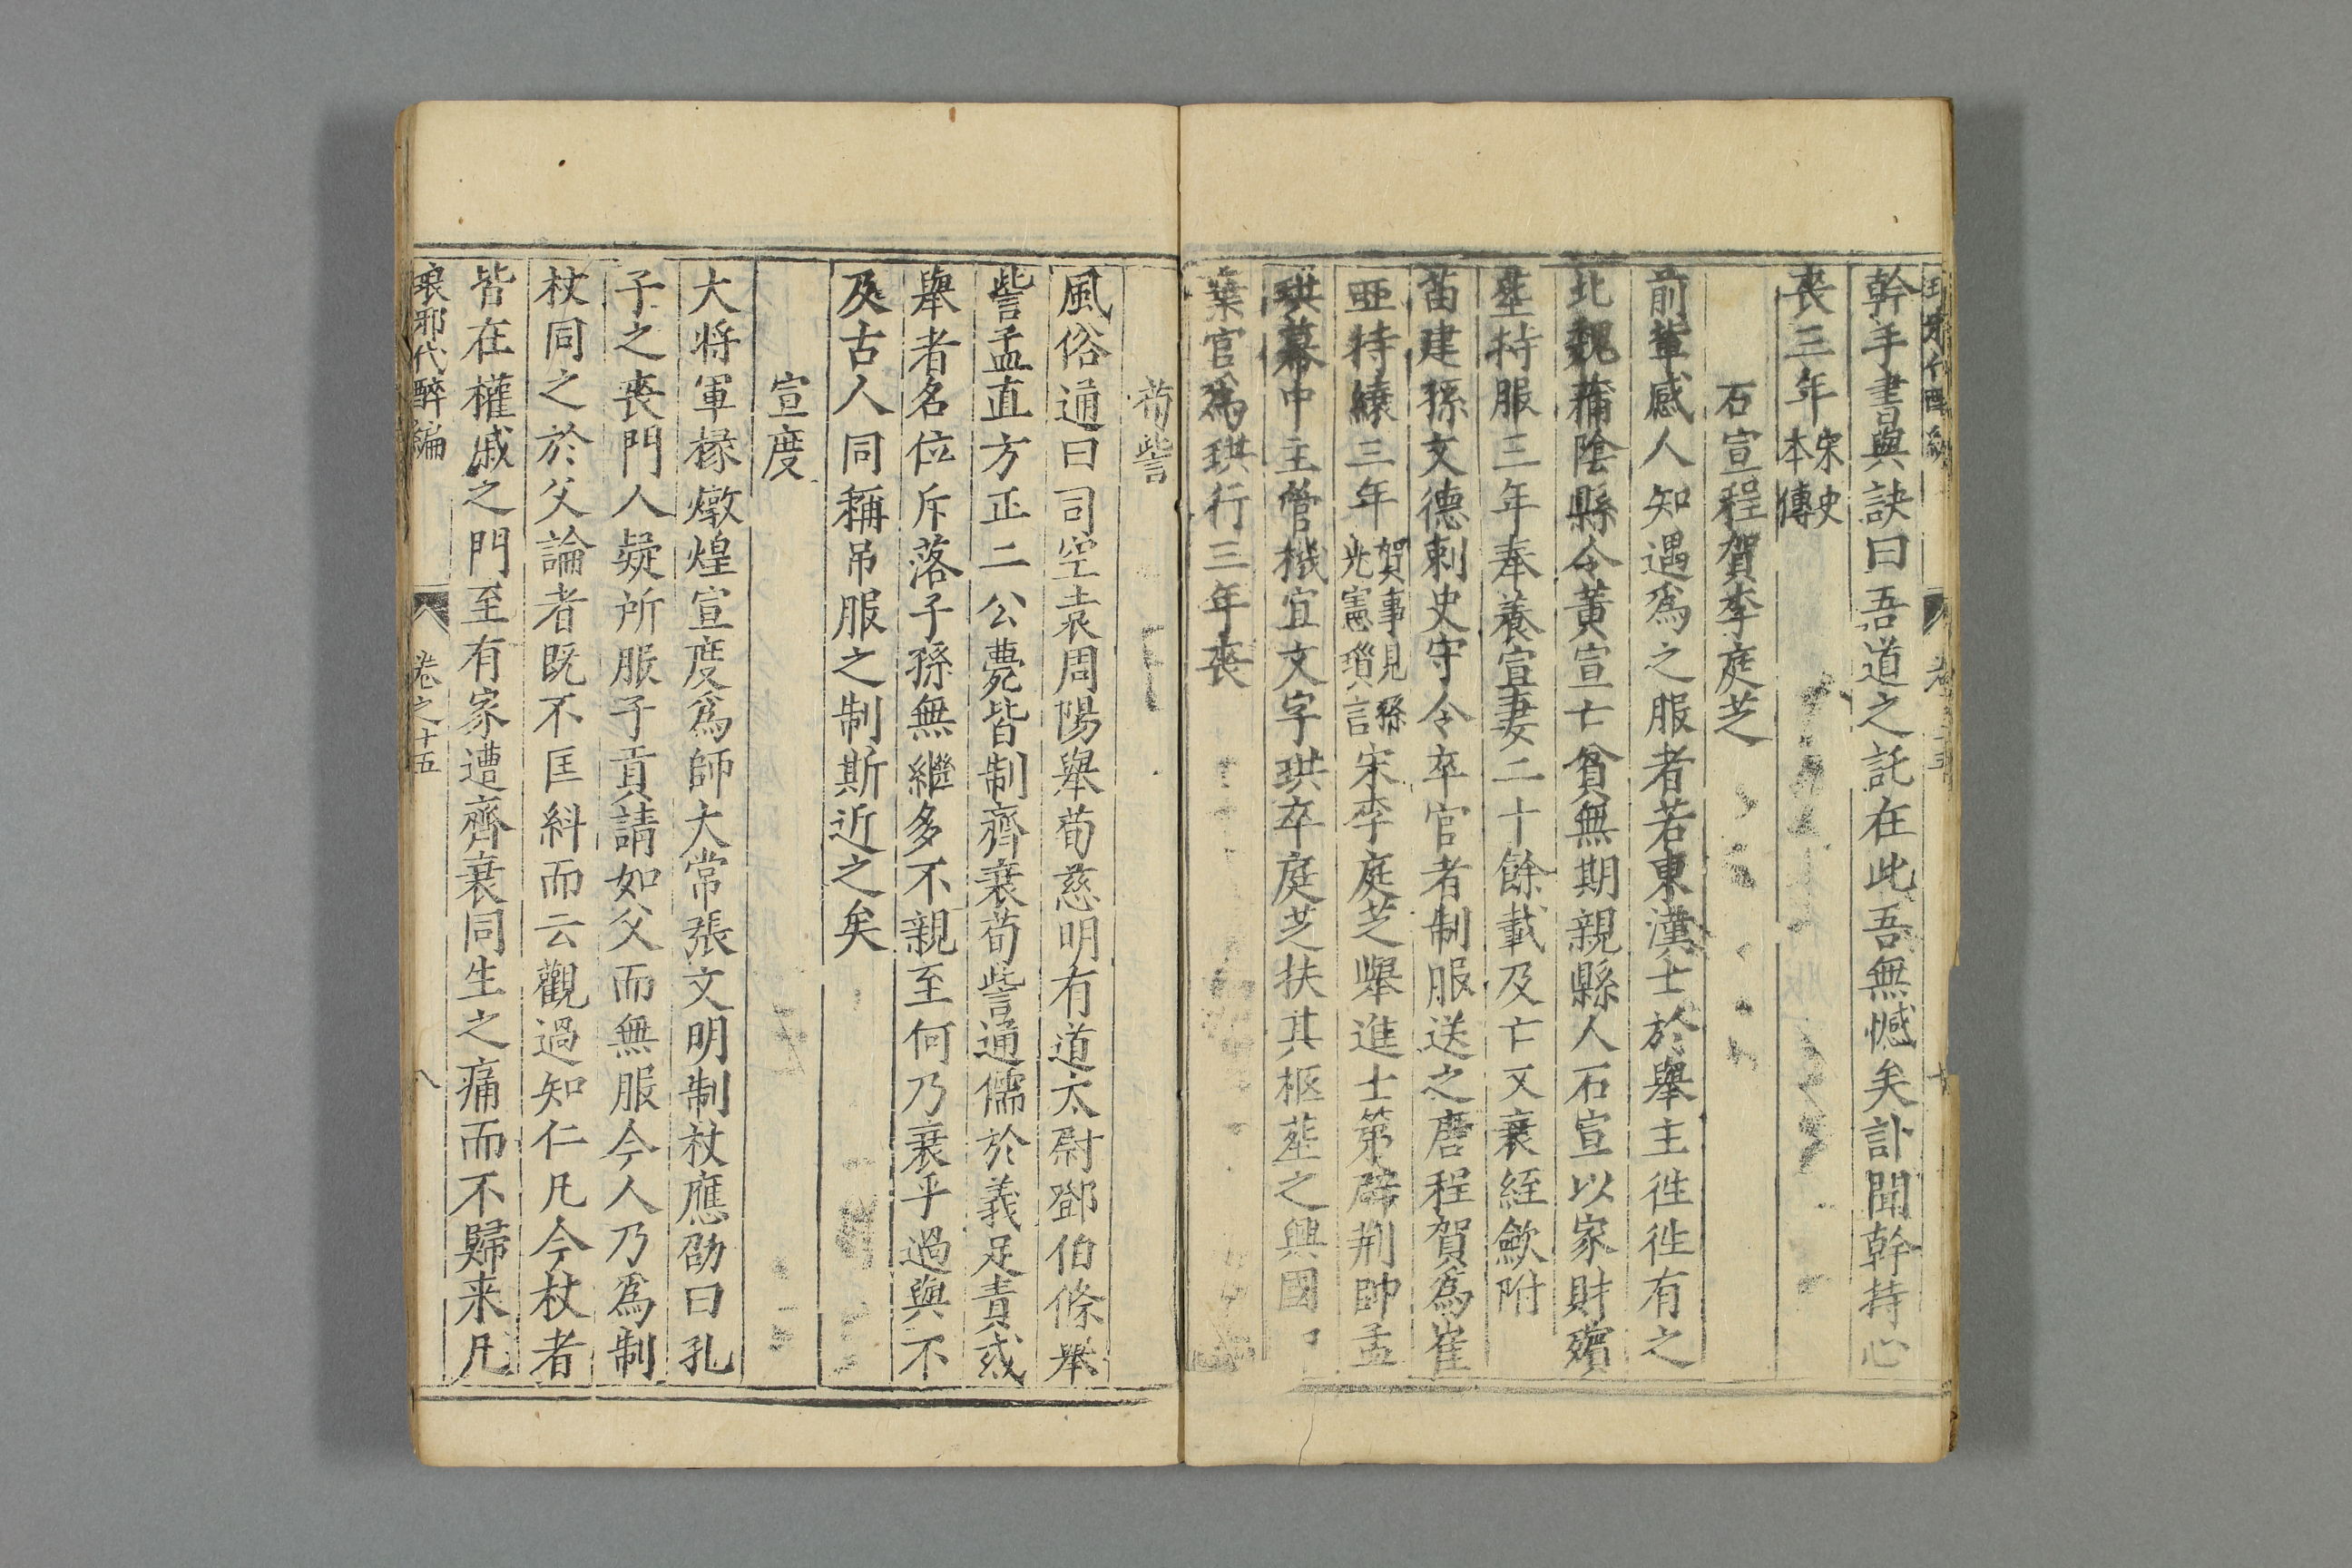 幹手書與訣曰吾道之託在此吾無憾矣訃聞幹持心
喪三年宋史本傳
石宣程賀李庭芝
前輩感人知遇爲之服者若東漢士於舉主徃徃有之
北魏蒲陰縣令黃宣亡貧無期親縣人石宣以家財殯
塟持服三年奉養宣妻二十餘載及亡又衰絰斂附
苗建孫文德刺史守令卒官者制服送之唐程賀爲崔
亞持縗三年賀事見孫光憲瑣言宋李庭芝舉進士第辟荆帥孟
珙幕中主管機宜文字珙卒庭芝扶其柩塟之興國
棄官爲珙行三年喪
荀訾
風俗通曰司空袁周陽舉荀慈明有道太尉鄧伯條舉
訾孟直方正二公薨皆制齊衰荀訾通儒於義足責或
舉者名位斥落子孫無繼多不親至何乃衰乎過與不
及古人同稱吊服之制斯近之矣
宣度
大將軍掾燉煌宣度爲師大常張文明制杖應劭曰孔
子之喪門人疑所服子貢請如父而無服今人乃爲制
杖同之於父論者既不匡糾而云觀過知仁凡今杖者
皆在權戚之門至有家遭齊衰同生之痛而不歸来凡
琅邪代醉編
卷之十五
八